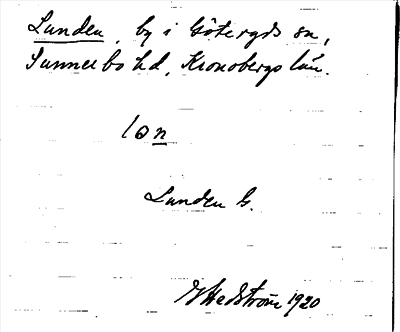 Lunden, by i Göteryds sn,
Sunnerbo hd, Kronobergs län.
lon
Lunden G.
G Hedström 1920